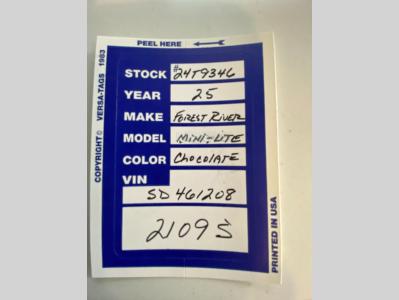 PEEL HERE
STOCK #24T9346
YEAR 25
MAKE FOREST RIVER
MODEL MINI-LITE
COLOR CHOCOLATE
VIN
SD461208
2109S
COPYRIGHT© VERSA-TAGS 1983
PRINTED IN USA